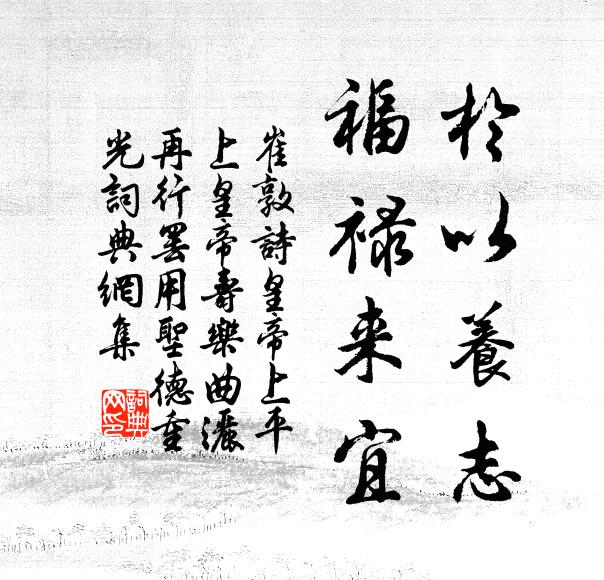 於以養志
福禄来宜
崔敦詩皇帝上平
上皇帝壽樂曲灑
再行罢用聖德重
光詞典網集
詞典
网印